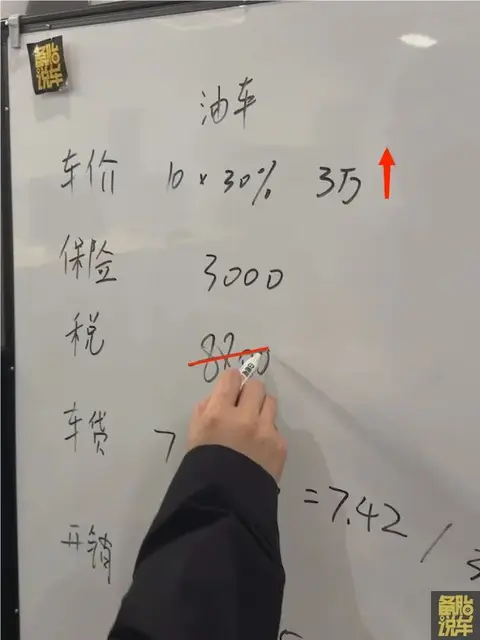 备胎
说车
油车
车价 10 × 30% 3万
保险 3000
税 8800
车贷 7
=7.42 /
开销
备胎
说车